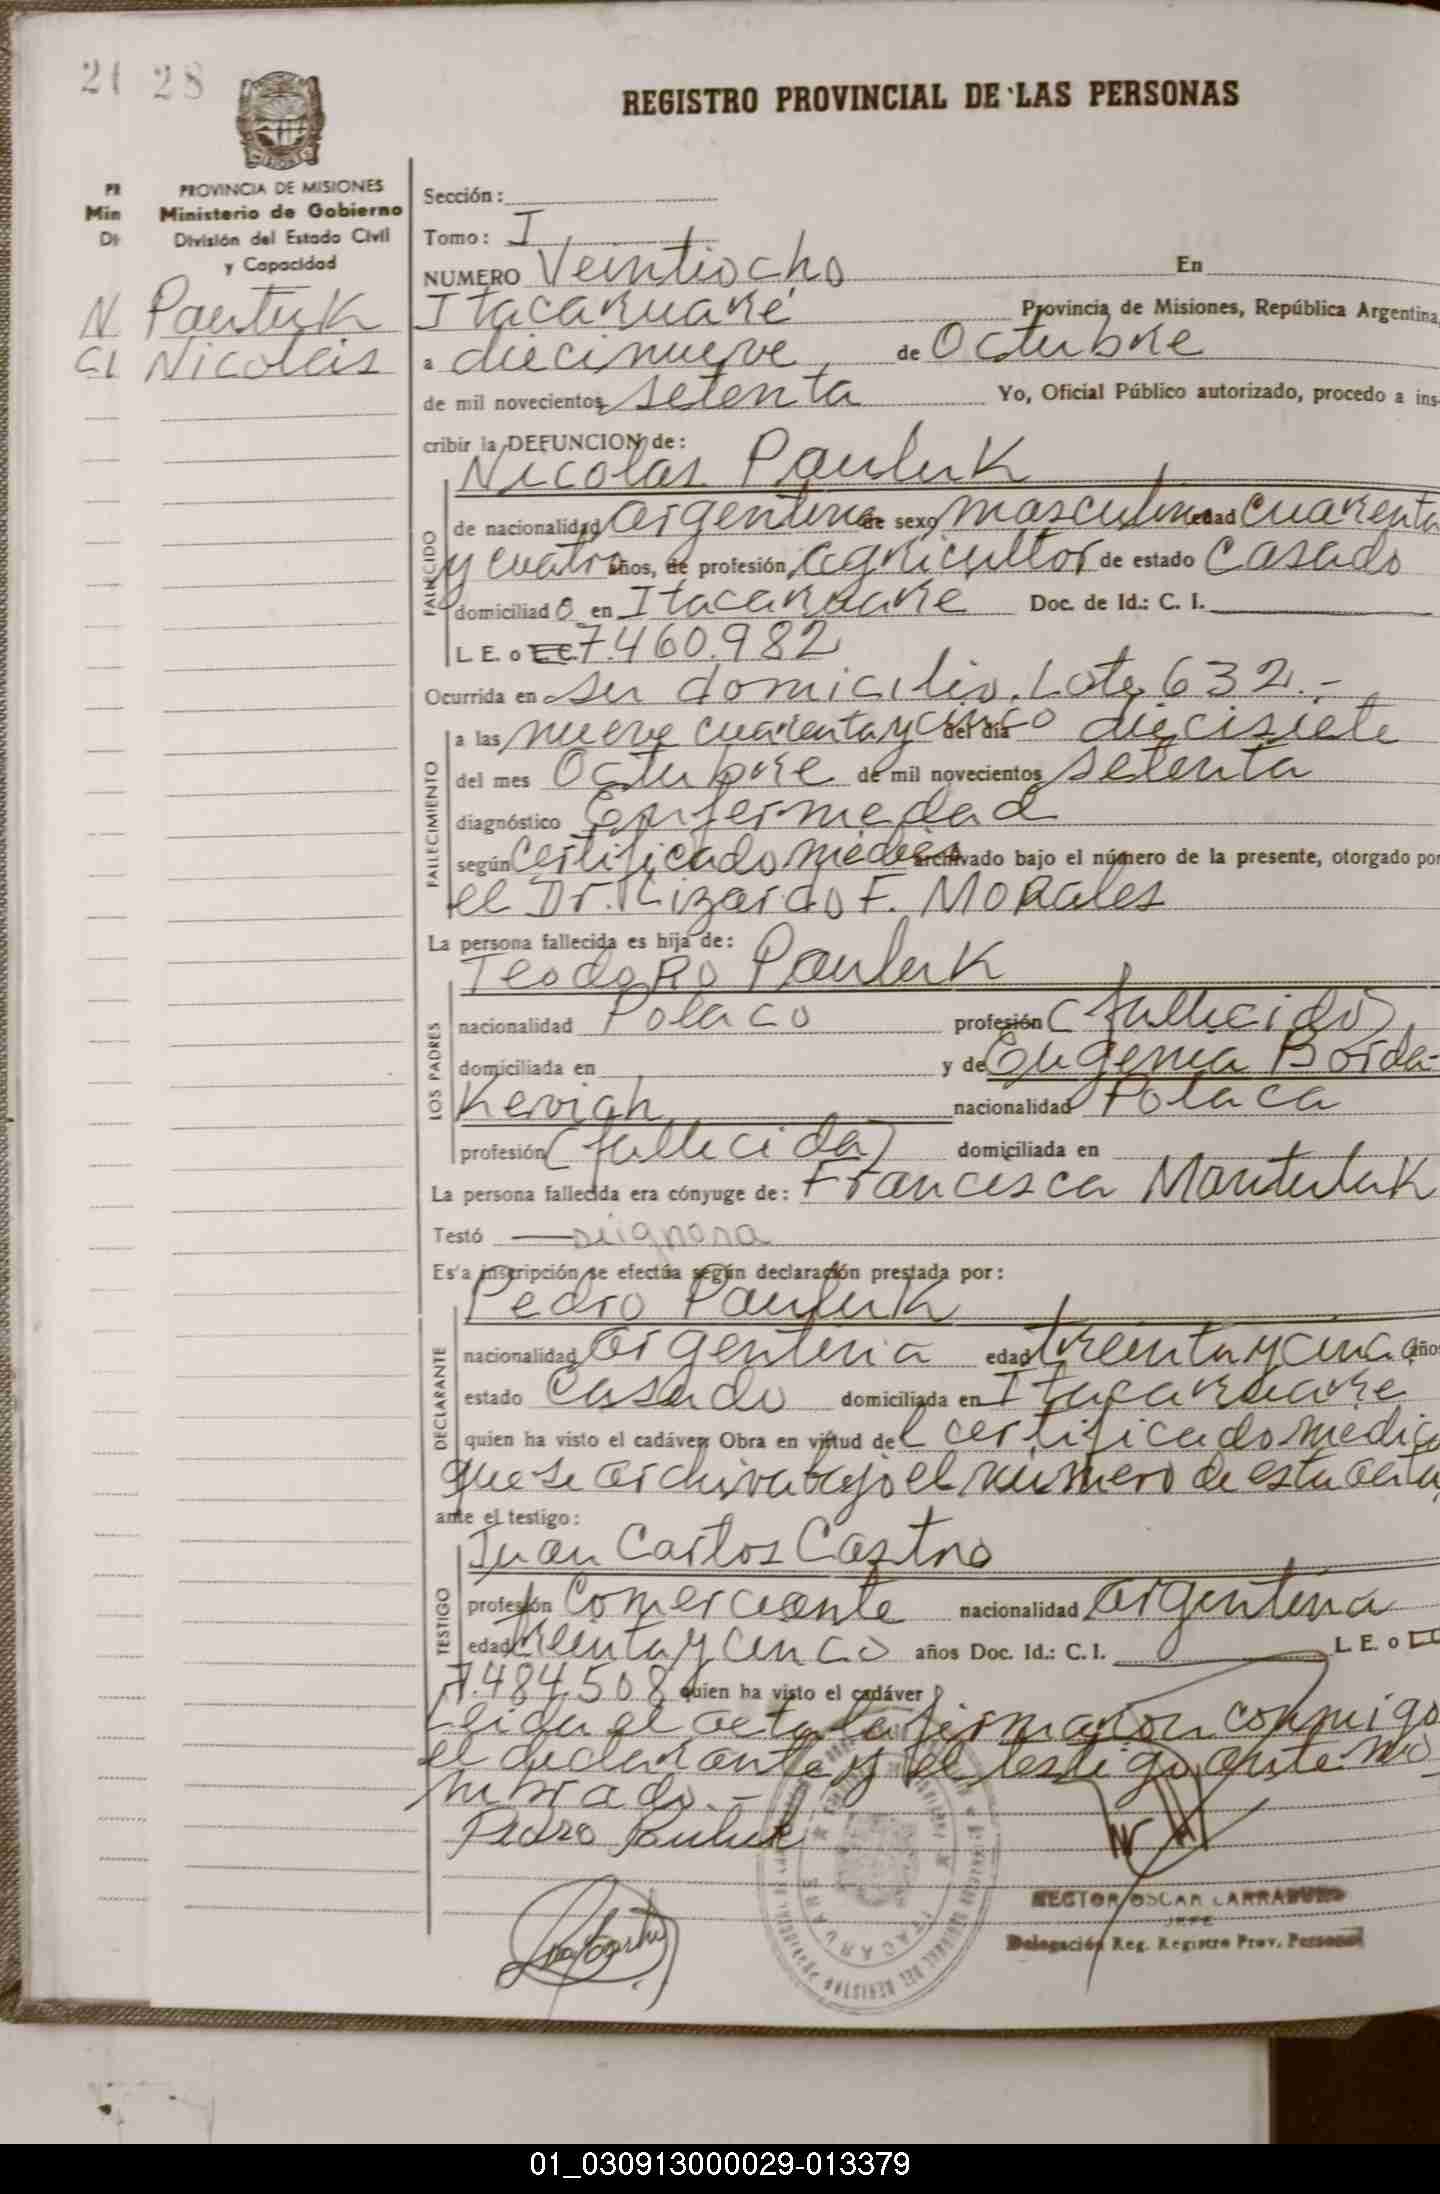 21 28
REGISTRO PROVINCIAL DE LAS PERSONAS
PR
Min
Di
PROVINCIA DE MISIONES
Ministerio de Gobierno
División del Estado Civil
y Capacidad
N Pauluk
Nicolás
Sección:
Tomo: I
NUMERO Veintiocho En
Itacaruaré Provincia de Misiones, República Argentina,
a diecinueve de Octubre
de mil novecientos setenta Yo, Oficial Público autorizado, procedo a ins-
cribir la DEFUNCION de:
Nicolas Pauluk
FALLECIDO
de nacionalidad argentina de sexo masculino edad cuarenta
y cuatro años, de profesión agricultor de estado Casado
domiciliad o en Itacaruare Doc. de Id.: C. I.
L. E. o L.C. 7.460.982
Ocurrida en su domicilio. Lote 632.-
FALLECIMIENTO
a las nueve cuarenta y cinco del día diecisiete
del mes Octubre de mil novecientos setenta
diagnóstico Enfermedad
según Certificado médico archivado bajo el número de la presente, otorgado por
el Dr. Lizardo F. Morales
La persona fallecida es hija de:
LOS PADRES
Teodoro Pauluk
nacionalidad Polaco profesión (fallecido)
domiciliada en y de Eugenia Borda-
Kevich nacionalidad Polaca
profesión (fallecida) domiciliada en
La persona fallecida era cónyuge de: Francisca Mantuluk
Testó — se ignora
Esta inscripción se efectúa según declaración prestada por:
DECLARANTE
Pedro Pauluk
nacionalidad argentina edad treinta y cinco años
estado Casado domiciliada en Itacaruare
quien ha visto el cadáver. Obra en virtud del certificado medico
que se archiva bajo el número de esta acta
ante el testigo:
TESTIGO
Juan Carlos Castro
profesión Comerciante nacionalidad argentina
edad treinta y cinco años Doc. Id.: C. I. L. E. o L.C.
7.484.508 quien ha visto el cadáver
Leida el acta la firmaron conmigo
el declarante y el testigo ante no
mbrado.-
Pedro Pauluk
ITACARUARE
HECTOR OSCAR LARRABURO
JEFE
Delegación Reg. Registro Prov. Personal
01_030913000029-013379